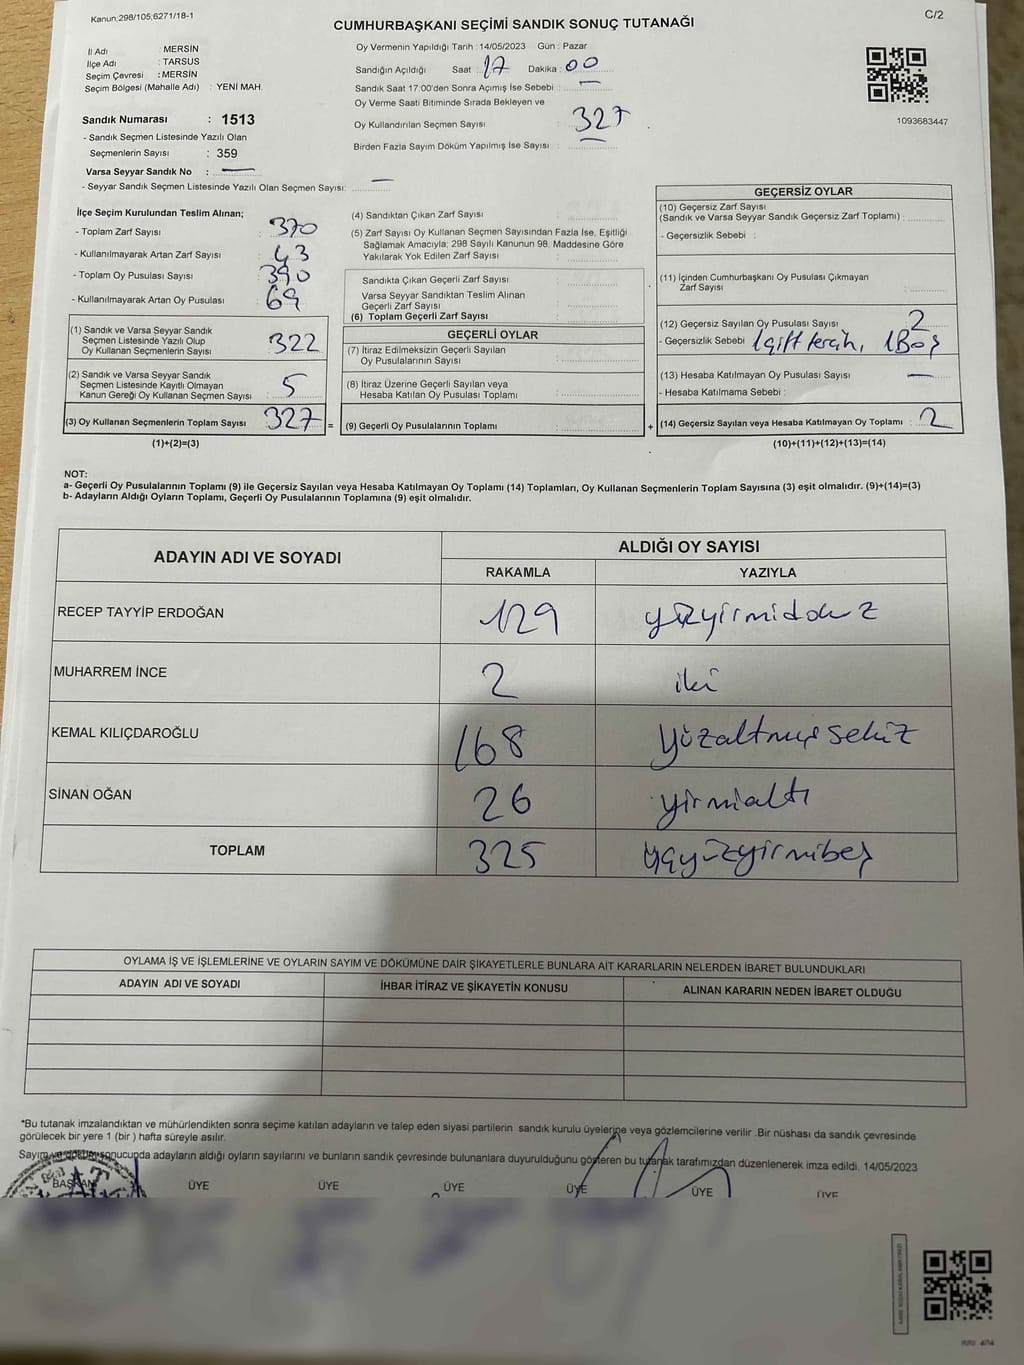 Kanun,298/105,6271/18-1
C/2
CUMHURBAŞKANI SEÇİMİ SANDIK SONUÇ TUTANAĞI
İl Adı : MERSİN
İlçe Adı : TARSUS
Seçim Çevresi : MERSİN
Seçim Bölgesi (Mahalle Adı) : YENİ MAH.
Oy Vermenin Yapıldığı Tarih : 14/05/2023 Gün : Pazar
Sandığın Açıldığı Saat 17 Dakika : 00
Sandık Saat 17:00'den Sonra Açılmış İse Sebebi : —
Oy Verme Saati Bitiminde Sırada Bekleyen ve
Oy Kullandırılan Seçmen Sayısı : 327
Birden Fazla Sayım Döküm Yapılmış İse Sayısı : —
1093683447
Sandık Numarası : 1513
- Sandık Seçmen Listesinde Yazılı Olan
Seçmenlerin Sayısı : 359
Varsa Seyyar Sandık No : —
- Seyyar Sandık Seçmen Listesinde Yazılı Olan Seçmen Sayısı: —
İlçe Seçim Kurulundan Teslim Alınan;
- Toplam Zarf Sayısı : 370
- Kullanılmayarak Artan Zarf Sayısı : 43
- Toplam Oy Pusulası Sayısı : 390
- Kullanılmayarak Artan Oy Pusulası : 69
(1) Sandık ve Varsa Seyyar Sandık
Seçmen Listesinde Yazılı Olup
Oy Kullanan Seçmenlerin Sayısı : 322
(2) Sandık ve Varsa Seyyar Sandık
Seçmen Listesinde Kayıtlı Olmayan
Kanun Gereği Oy Kullanan Seçmen Sayısı : 5
(3) Oy Kullanan Seçmenlerin Toplam Sayısı : 327 =
(1)+(2)=(3)
(4) Sandıktan Çıkan Zarf Sayısı :
(5) Zarf Sayısı Oy Kullanan Seçmen Sayısından Fazla İse, Eşitliği
Sağlamak Amacıyla; 298 Sayılı Kanunun 98. Maddesine Göre
Yakılarak Yok Edilen Zarf Sayısı :
Sandıkta Çıkan Geçerli Zarf Sayısı :
Varsa Seyyar Sandıktan Teslim Alınan
Geçerli Zarf Sayısı :
(6) Toplam Geçerli Zarf Sayısı :
GEÇERLİ OYLAR
(7) İtiraz Edilmeksizin Geçerli Sayılan
Oy Pusulalarının Sayısı :
(8) İtiraz Üzerine Geçerli Sayılan veya
Hesaba Katılan Oy Pusulası Toplamı :
(9) Geçerli Oy Pusulalarının Toplamı : +
GEÇERSİZ OYLAR
(10) Geçersiz Zarf Sayısı
(Sandık ve Varsa Seyyar Sandık Geçersiz Zarf Toplamı) :
- Geçersizlik Sebebi :
(11) İçinden Cumhurbaşkanı Oy Pusulası Çıkmayan
Zarf Sayısı :
(12) Geçersiz Sayılan Oy Pusulası Sayısı : 2
- Geçersizlik Sebebi : 1 çift tercih, 1 Boş
(13) Hesaba Katılmayan Oy Pusulası Sayısı : —
- Hesaba Katılmama Sebebi :
(14) Geçersiz Sayılan veya Hesaba Katılmayan Oy Toplamı : 2
(10)+(11)+(12)+(13)=(14)
NOT:
a- Geçerli Oy Pusulalarının Toplamı (9) ile Geçersiz Sayılan veya Hesaba Katılmayan Oy Toplamı (14) Toplamları, Oy Kullanan Seçmenlerin Toplam Sayısına (3) eşit olmalıdır. (9)+(14)=(3)
b- Adayların Aldığı Oyların Toplamı, Geçerli Oy Pusulalarının Toplamına (9) eşit olmalıdır.
ADAYIN ADI VE SOYADI ALDIĞI OY SAYISI
RAKAMLA YAZIYLA
RECEP TAYYİP ERDOĞAN 129 yüzyirmidokuz
MUHARREM İNCE 2 iki
KEMAL KILIÇDAROĞLU 168 yüzaltmış sekiz
SİNAN OĞAN 26 yirmialtı
TOPLAM 325 üçyüzyirmibeş
OYLAMA İŞ VE İŞLEMLERİNE VE OYLARIN SAYIM VE DÖKÜMÜNE DAİR ŞİKAYETLERLE BUNLARA AİT KARARLARIN NELERDEN İBARET BULUNDUKLARI
ADAYIN ADI VE SOYADI İHBAR İTİRAZ VE ŞİKAYETİN KONUSU ALINAN KARARIN NEDEN İBARET OLDUĞU
*Bu tutanak imzalandıktan ve mühürlendikten sonra seçime katılan adayların ve talep eden siyasi partilerin sandık kurulu üyelerine veya gözlemcilerine verilir. Bir nüshası da sandık çevresinde
görülecek bir yere 1 (bir ) hafta süreyle asılır.
Sayım ve döküm sonucunda adayların aldığı oyların sayılarını ve bunların sandık çevresinde bulunanlara duyurulduğunu gösteren bu tutanak tarafımızdan düzenlenerek imza edildi. 14/05/2023
BAŞKAN ÜYE ÜYE ÜYE ÜYE ÜYE ÜYE